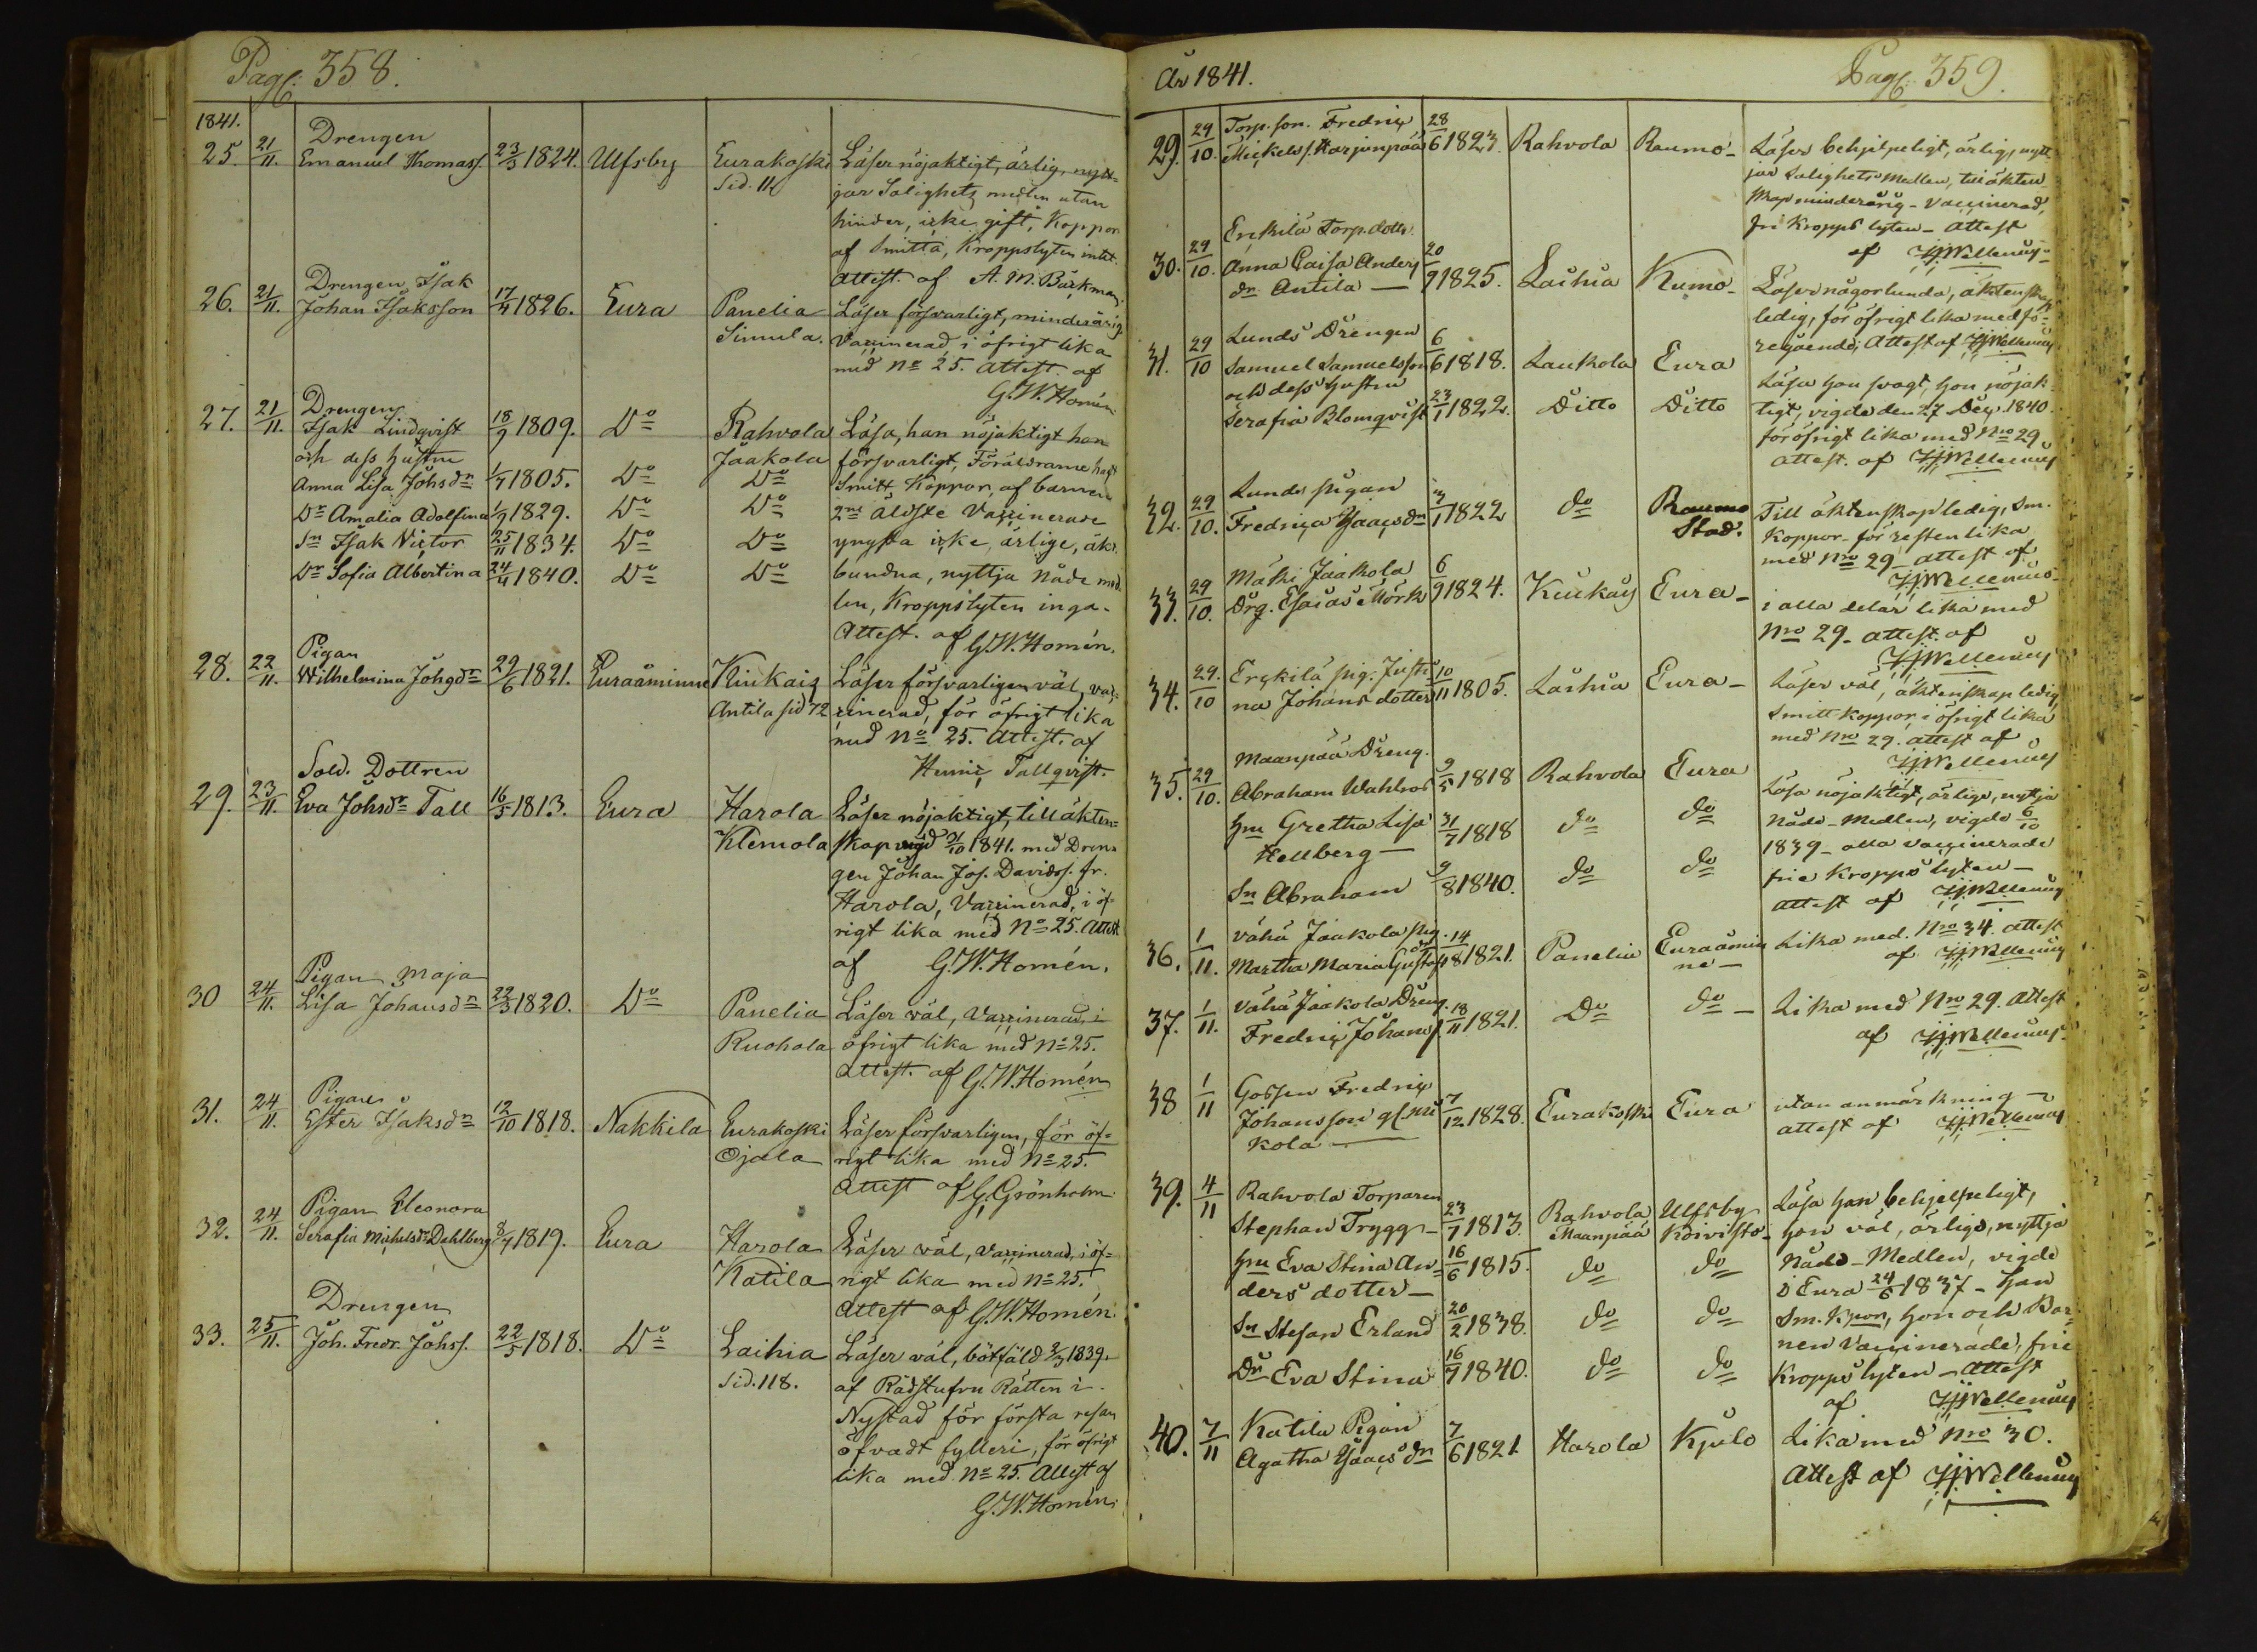 Pag: 358.
1841.
25. 21/11. Drengen
Emanuel Thomass. 23/3 1824. Ulfsby Eurakoski Läser nöjaktigt, ärlig, nytt=
Sid. 11 jar Salighetz medlen utan
hinder, icke gift, Koppor
af Smitta, Kroppslyten intet.
Attest. af A. M. Backman.
26. 21/11. Drengen Isak
Johan Isaksson 17/4 1826. Eura Panelia Läser försvarligt, minderårig
Simula. Vaccinerad i öfrigt lika
med No 25. Attest. af
G. W. Homén.
27. 21/11. Drengen
Isak Lindqvist 18/9 1809. Do Rahvola Läsa, han nöjaktigt hon
och dess hustru Jaakola försvarligt, Föräldrarne haft
Anna Lisa Johsdr 1/7 1805. Do Do Smitt Koppor, af barnen
Dr Amalia Adolfina 1/9 1829. Do Do 2ne äldste Vaccinerade
Sn Isak Victor 25/11 1834. Do Do yngsta icke, ärlige, äkt.
Dr Sofia Albertina 24/4 1840. Do Do bundna, nyttja Nåde med
len, Kroppslyten inga.
Attest. af G. W. Homén.
28. 22/11. Pigan
Wilhelmina Johgdr 29/6 1821. Euraåminne Kiukais Läser försvarligen väl, vac=
Antila sid 72 cinerad, för öfrigt lika
med No 25. Attest. af
Tallqvist.
29. 23/11. Sold. Dottren
Eva Johsdr Tall 16/5 1813. Eura Harola Läser nöjaktigt, till äkten=
Klemola skap vigd 31/10 1841. med Dren=
gen Johan Jos. Davidss. fr.
Harola, Vaccinerad, i öf=
rigt lika med No 25. Attest
af G. W. Homén.
30 24/11. Pigan Maja
Lisa Johansdr 22/3 1820. Do Panelia Läser väl, Vaccinerad, i
Ruohola öfrigt lika med No 25.
Attest. af G. W. Homén
31. 24/11. Pigan
Ester Isaksdr 12/10 1818. Nakkila Eurakoski Läser försvarligen, för öf=
Ojala rigt lika med No 25.
Attest af G. Grönholm.
32. 24/11. Pigan Eleonora
Serafia Michelsdr Dahlberg 8/4 1819. Eura Harola Läser väl, vaccinerad, i öf=
Katila rigt lika med No 25.
Attest af G. W. Homén.
33. 25/11. Drengen
Joh. Fredr. Johss. 22/5 1818. Do Laihia Läser väl, bötfäld 1839.
Sid. 118. af Rådstufvu Rätten i
Nystad för första resan
öfvadt fylleri, för öfrigt
lika med No 25. Attest af
G. W. Homén.
År 1841.
Pag: 359.
29. 29/10. Torp. son. Fredric 28/6 1823. Rahvola Raumo- Läser behjelpeligt, ärlig, nytt
Mickelss. Harjunpää jar Salighets Medlen, till äkten
skap minderårig - Vaccinerad,
fri Kropps lyten - Attest
af Wellenius
30. 29/10. Erckilä Torp. dottr.
Anna Caisa Anders 20/9 1825. Laihia Kumo- Läser någorlunda, äktenskaps
dr Antila - ledig, för öfrigt lika med fö=
regående; Attest af Wellenius
31. 29/10 Lunds Drengen
Samuel Samuelsson 6/6 1818. Laukola Eura Läsa han svagt, hon nöjak
och dess hustru
Serafia Blomqvist 23/1 1822. Ditto Ditto tigt, vigde den 27 Dec. 1840.
för öfrigt lika med Nro 29
attest. af Wellenius
32. 29/10. Lunds pigan
Fredrica Isacsdr 1822 do Raumo Till äktenskap ledig, Sm.
Stad. koppor - för resten lika
med Nro 29 - attest af
Wellenius
33. 29/10. Mäki Jaakola
Drg. Esaias Mörk 6/9 1824. Kiukais Eura - i alla delar lika med
Nro 29 - attest. af
Wellenius
34. 29./10 Erckilä pig. Justi 10/11 1805. Laihia Eura - Läser väl, äktenskap ledig
na Johans dotter Smitt koppor, i öfrigt lika
med Nro 29. attest af
Wellenius
35. 29/10. Maanpää Dreng.
Abraham Wahlros 9/5 1818 Rahvola Eura Läsa nöjaktigt, ärlige, nyttja
Hru Gretha Lisa 31/7 1818 do do Nåde-Medlen, vigde 6/10
Hellberg - 1839 - alla vaccinerade
Sn Abraham 9/8 1840. do do frie kropps lyten -
attest af Wellenius
36. 1/11. Vähä Jaakola pig.
Martha Maria Gustafsdr 14/8 1821. Panelia Euraåmin Lika med. Nro 34. attest
ne - af Wellenius
37. 1/11. Vähä Jaakola Dreng.
Fredric Johans s. 18/11 1821. Do do - Lika med Nro 29. Attest
af Wellenius.
38 1/11 Gossen Fredric
Johansson 7/12 1828. Eurakoski Eura utan anmärkning -
kola - attest af Wellenius
39. 4/11 Rahvola Torparen
Stephan Trygg - 23/1 1813. Rahvola Ulfsby Läsa han behjelpeligt,
Maanpää Koivisto - hon väl, ärlige, nyttja
Hru Eva Stina An= 16/6 1815. do do Nåde-Medlen, vigde
ders dotter - i Eura 24/6 1837 - han
Sn Stefan Erland 20/2 1838. do do Sm. Kpor, hon och Bar
nen Vaccinerade, frie
Dr Eva Stina 16/7 1840. do do Kropps lyten - Attest
af Wellenius
40. 7/11 Katila Pigan
Agatha Isaacsdr 7/6 1821 Harola Kjulo Lika med Nro 30.
Attest af Wellenius